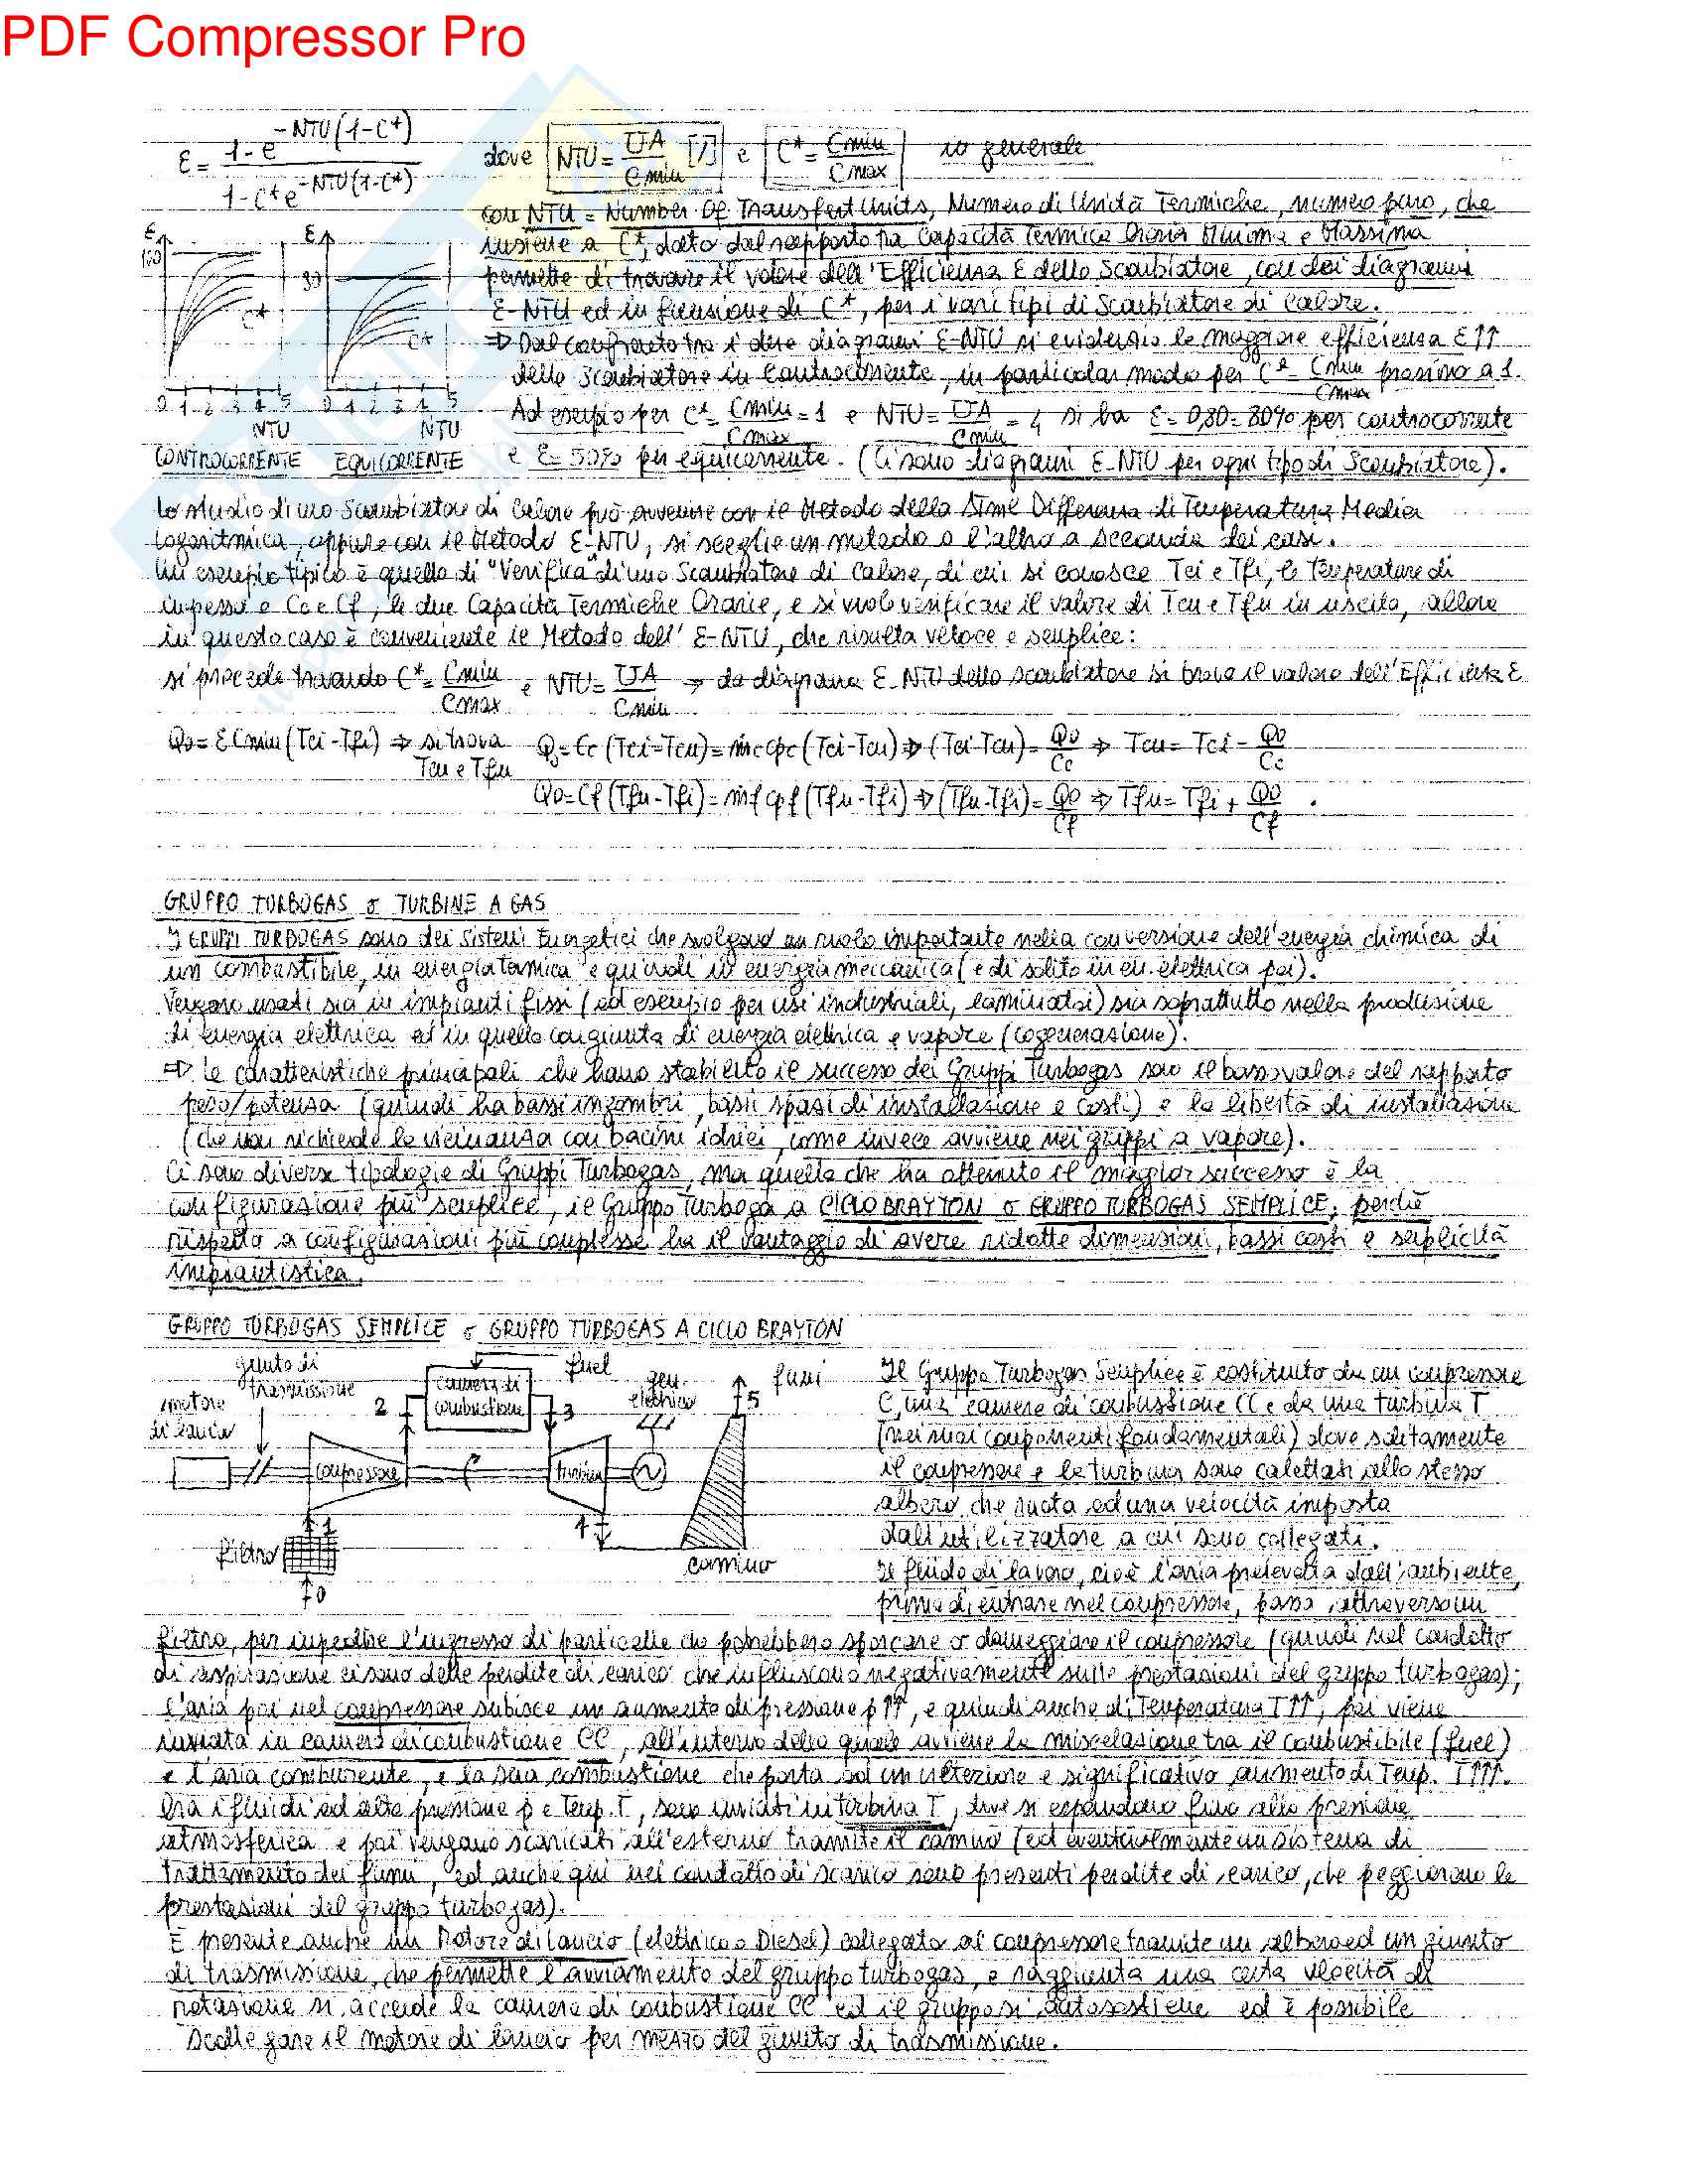 PDF Compressor Pro
ε = (1-e^{-NTU(1-C*)})/(1-C*e^{-NTU(1-C*)}) dove NTU = UA/Cmin [/] e C* = Cmin/Cmax in generale
con NTU = Number Of Transfert Units, Numero di Unità Termiche, numero puro, che
insieme a C*, dato dal rapporto tra Capacità Termica Oraria Minima e Massima
permette di trovare il valore dell'Efficienza ε dello Scambiatore, con dei diagrammi
ε-NTU ed in funzione di C*, per i vari tipi di Scambiatore di Calore.
⇒ Dal confronto tra i due diagrammi ε-NTU si evidenzia la maggiore efficienza ε↑↑
dello Scambiatore in Controcorrente, in particolar modo per C* = Cmin/Cmax prossimo a 1.
Ad esempio per C* = Cmin/Cmax = 1 e NTU = UA/Cmin = 4 si ha ε = 0,80 = 80% per controcorrente
e ε = 50% per equicorrente. (Ci sono diagrammi ε-NTU per ogni tipo di Scambiatore).
ε
100
C*
0 1 2 3 4 5
NTU
CONTROCORRENTE
ε
C*
0 1 2 3 4 5
NTU
EQUICORRENTE
Lo studio di uno Scambiatore di Calore può avvenire con il Metodo della ΔTml Differenza di Temperatura Media
Logaritmica, oppure con il Metodo ε-NTU, si sceglie un metodo o l'altro a seconda dei casi.
Un esempio tipico è quello di "Verifica" di uno Scambiatore di Calore, di cui si conosce Tci e Tfi, le Temperature di
ingresso e Cc e Cf, le due Capacità Termiche Orarie, e si vuole verificare il valore di Tcu e Tfu in uscita, allora
in questo caso è conveniente il Metodo dell' ε-NTU, che risulta veloce e semplice:
si procede trovando C* = Cmin/Cmax e NTU = UA/Cmin ⇒ da diagramma ε-NTU dello scambiatore si trova il valore dell'Efficienza ε
Q0 = ε Cmin (Tci-Tfi) ⇒ si trova Tcu e Tfu Q0 = Cc (Tci-Tcu) = ṁc cpc (Tci-Tcu) ⇒ (Tci-Tcu) = Q0/Cc ⇒ Tcu = Tci - Q0/Cc
Q0 = Cf (Tfu-Tfi) = ṁf cpf (Tfu-Tfi) ⇒ (Tfu-Tfi) = Q0/Cf ⇒ Tfu = Tfi + Q0/Cf .
GRUPPO TURBOGAS o TURBINE A GAS
I GRUPPI TURBOGAS sono dei Sistemi Energetici che svolgono un ruolo importante nella conversione dell'energia chimica di
un combustibile, in energia termica e quindi in energia meccanica (e di solito in en. elettrica poi).
Vengono usati sia in impianti fissi (ad esempio per usi industriali, laminatoi) sia soprattutto nella produzione
di energia elettrica ed in quella congiunta di energia elettrica e vapore (cogenerazione).
⇒ Le caratteristiche principali che hanno stabilito il successo dei Gruppi Turbogas sono il basso valore del rapporto
peso/potenza (quindi ha bassi ingombri, bassi spazi di installazione e costi) e la libertà di installazione
(che non richiede la vicinanza con bacini idrici, come invece avviene nei gruppi a vapore).
Ci sono diverse tipologie di Gruppi Turbogas, ma quella che ha ottenuto il maggior successo è la
configurazione più semplice, il Gruppo Turboga a CICLO BRAYTON o GRUPPO TURBOGAS SEMPLICE, perché
rispetto a configurazioni più complesse ha il vantaggio di avere ridotte dimensioni, bassi costi e semplicità
impiantistica.
GRUPPO TURBOGAS SEMPLICE o GRUPPO TURBOGAS A CICLO BRAYTON
giunto di
trasmissione
motore
di lancio
2
camera di
combustione
fuel
3
gen.
elettrico
fumi
5
compressore
turbina
1
4
filtro
camino
0
Il Gruppo Turbogas Semplice è costituito da un compressore
C, una camera di combustione CC e da una turbina T
(nei suoi componenti fondamentali) dove solitamente
il compressore e la turbina sono calettati allo stesso
albero che ruota ad una velocità imposta
dall'utilizzatore a cui sono collegati.
Il fluido di lavoro, cioè l'aria prelevata dall'ambiente,
prima di entrare nel compressore, passa attraverso un
filtro, per impedire l'ingresso di particelle che potrebbero sporcare o danneggiare il compressore (quindi nel condotto
di aspirazione ci sono delle perdite di carico che influiscono negativamente sulle prestazioni del gruppo turbogas);
l'aria poi nel compressore subisce un aumento di pressione p↑↑, e quindi anche di Temperatura T↑↑; poi viene
inviata in camera di combustione CC, all'interno della quale avviene la miscelazione tra il combustibile (fuel)
e l'aria comburente, e la sua combustione che porta ad un ulteriore e significativo aumento di Temp. T↑↑↑.
Ora i fluidi ad alta pressione p e Temp. T, sono inviati in turbina T, dove si espandono fino alla pressione
atmosferica e poi vengono scaricati all'esterno tramite il camino (ed eventualmente un sistema di
trattamento dei fumi, ed anche qui nel condotto di scarico sono presenti perdite di carico, che peggiorano le
prestazioni del gruppo turbogas).
È presente anche un Motore di lancio (elettrico o Diesel) collegato al compressore tramite un albero ed un giunto
di trasmissione, che permette l'avviamento del gruppo turbogas, e raggiunta una certa velocità di
rotazione si accende la camera di combustione CC ed il gruppo si autosostiene ed è possibile
scollegare il motore di lancio per mezzo del giunto di trasmissione.